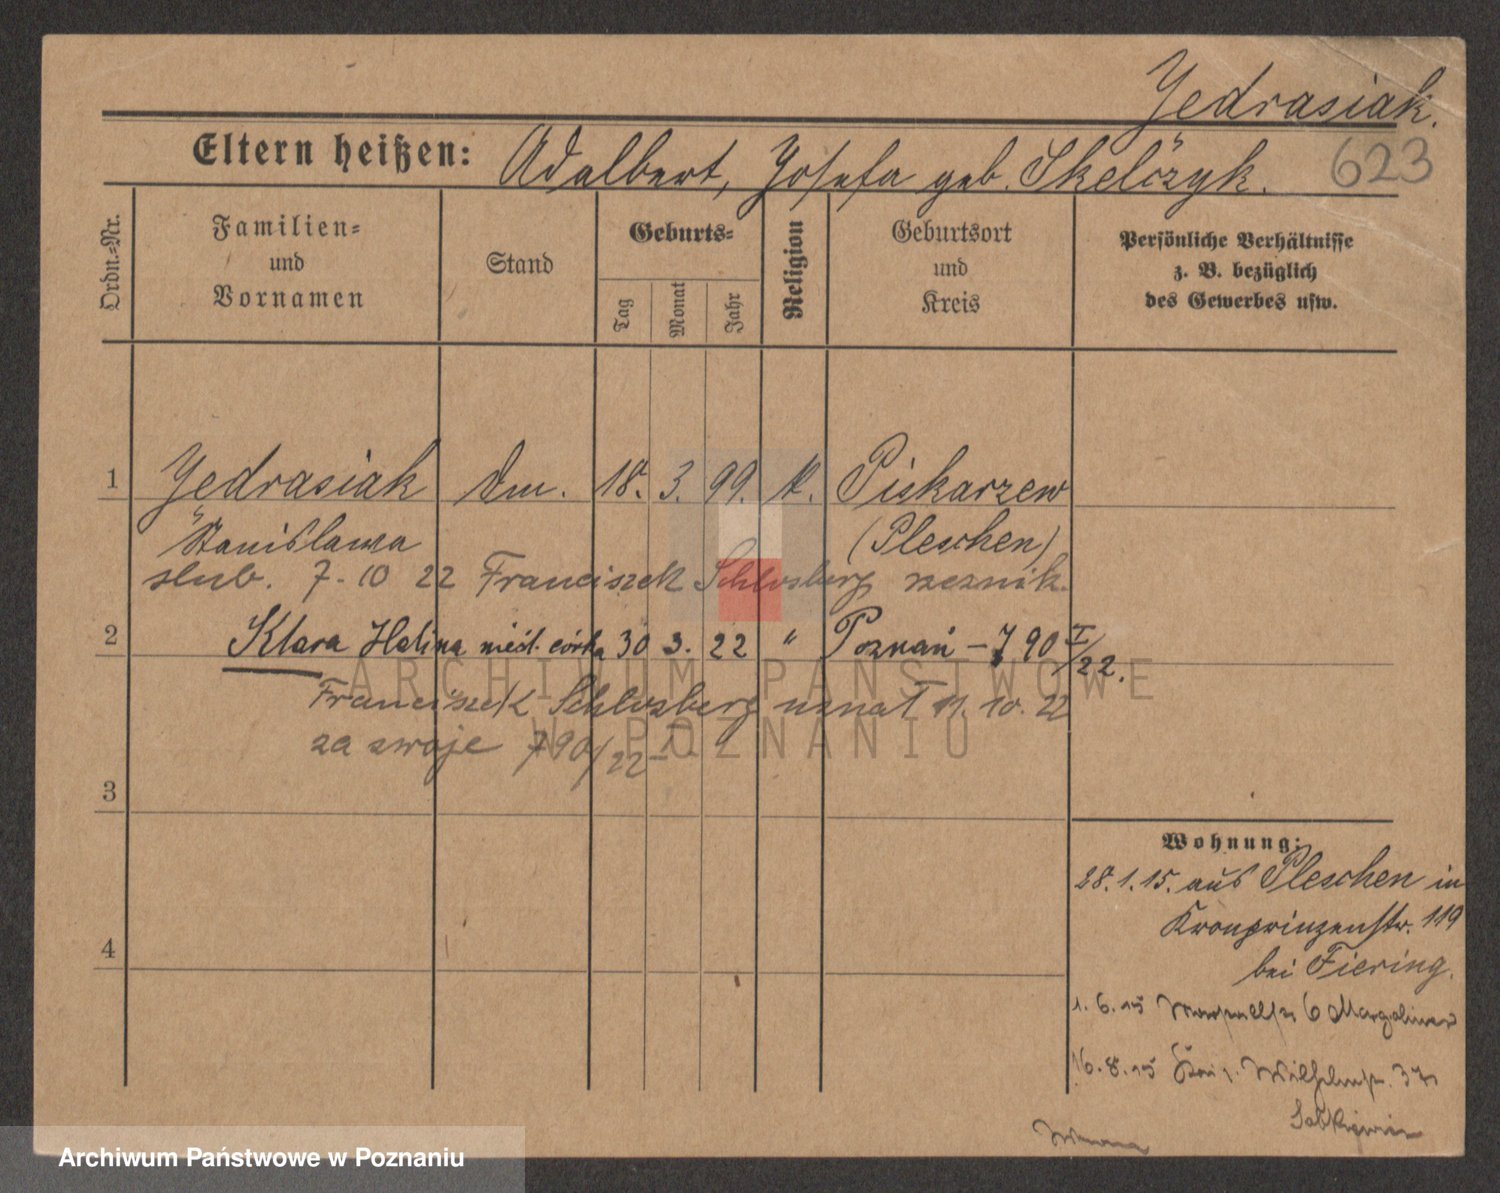 Jedrasiak.
623
Eltern heißen: Adalbert, Josefa geb. Skelczyk.
Ordn.-Nr.
Familien- und Vornamen
Stand
Geburts-
Tag
Monat
Jahr
Religion
Geburtsort und Kreis
Persönliche Verhältnisse z. B. bezüglich des Gewerbes usw.
1 Jedrasiak 18. 3. 99. k. Piekarzew
Stanislawa (Pleschen)
slub. 7-10 22 Franciszek Schlosberg rzeznik.
2 Klara Halina nieśl. córka 30 3. 22 " Poznań - J 90 I/22.
Franciszek Schlosberg uznał 11. 10. 22
za swoje 790/22 I
3
4
Wohnung:
28.1.15. aus Pleschen in
Kronprinzenstr. 119
bei Fiering.
1.6.15 6
16.8.15
ARCHIWUM PAŃSTWOWE
W POZNANIU
Archiwum Państwowe w Poznaniu